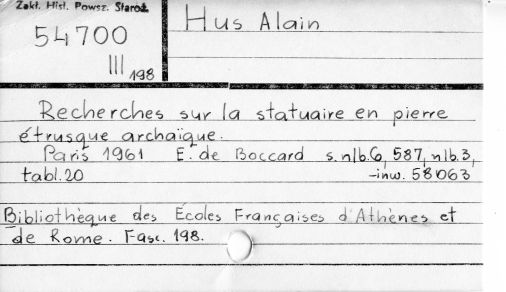 Zakł. Hist. Powsz. Staroż.
54700
III 198
Hus Alain
Recherches sur la statuaire en pierre
étrusque archaïque.
Paris 1961 E. de Boccard s. nlb. 6, 587, nlb. 3,
tabl. 20 -inw. 58063
Bibliothèque des Ecoles Françaises d'Athènes et
de Rome. Fasc. 198.